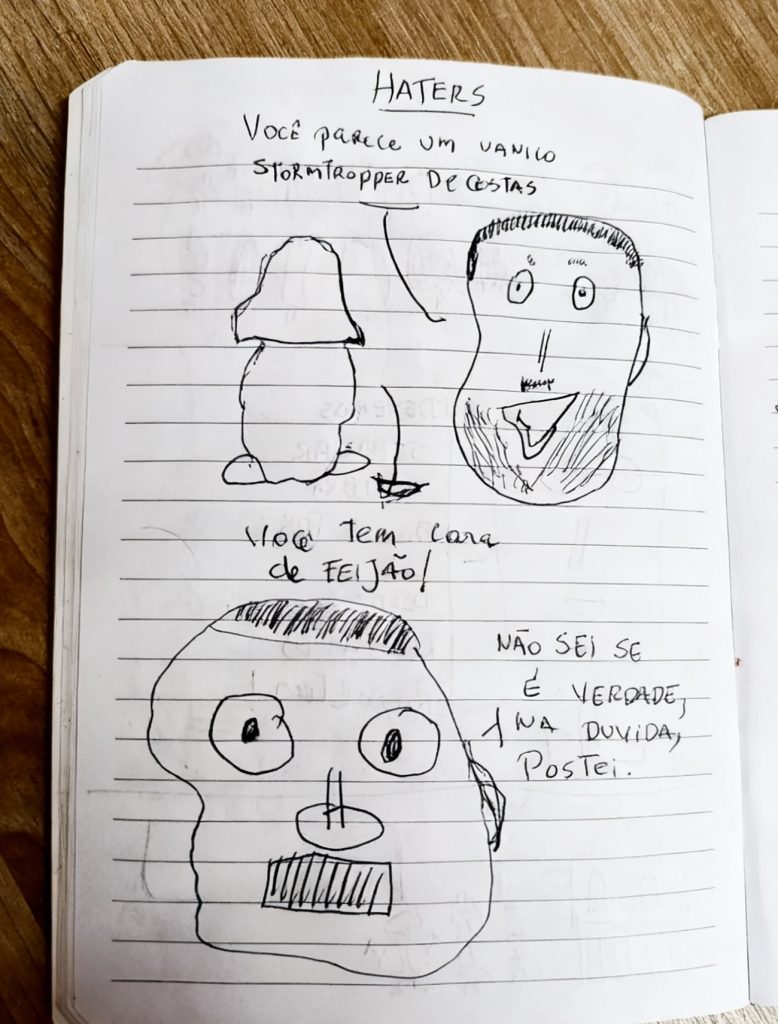 HATERS
VOCÊ PARECE UM VANICO
STORMTROPPER DE COSTAS
VOCÊ TEM CARA
de FEIJÃO!
NÃO SEI SE
É VERDADE,
NA DUVIDA,
POSTEI.